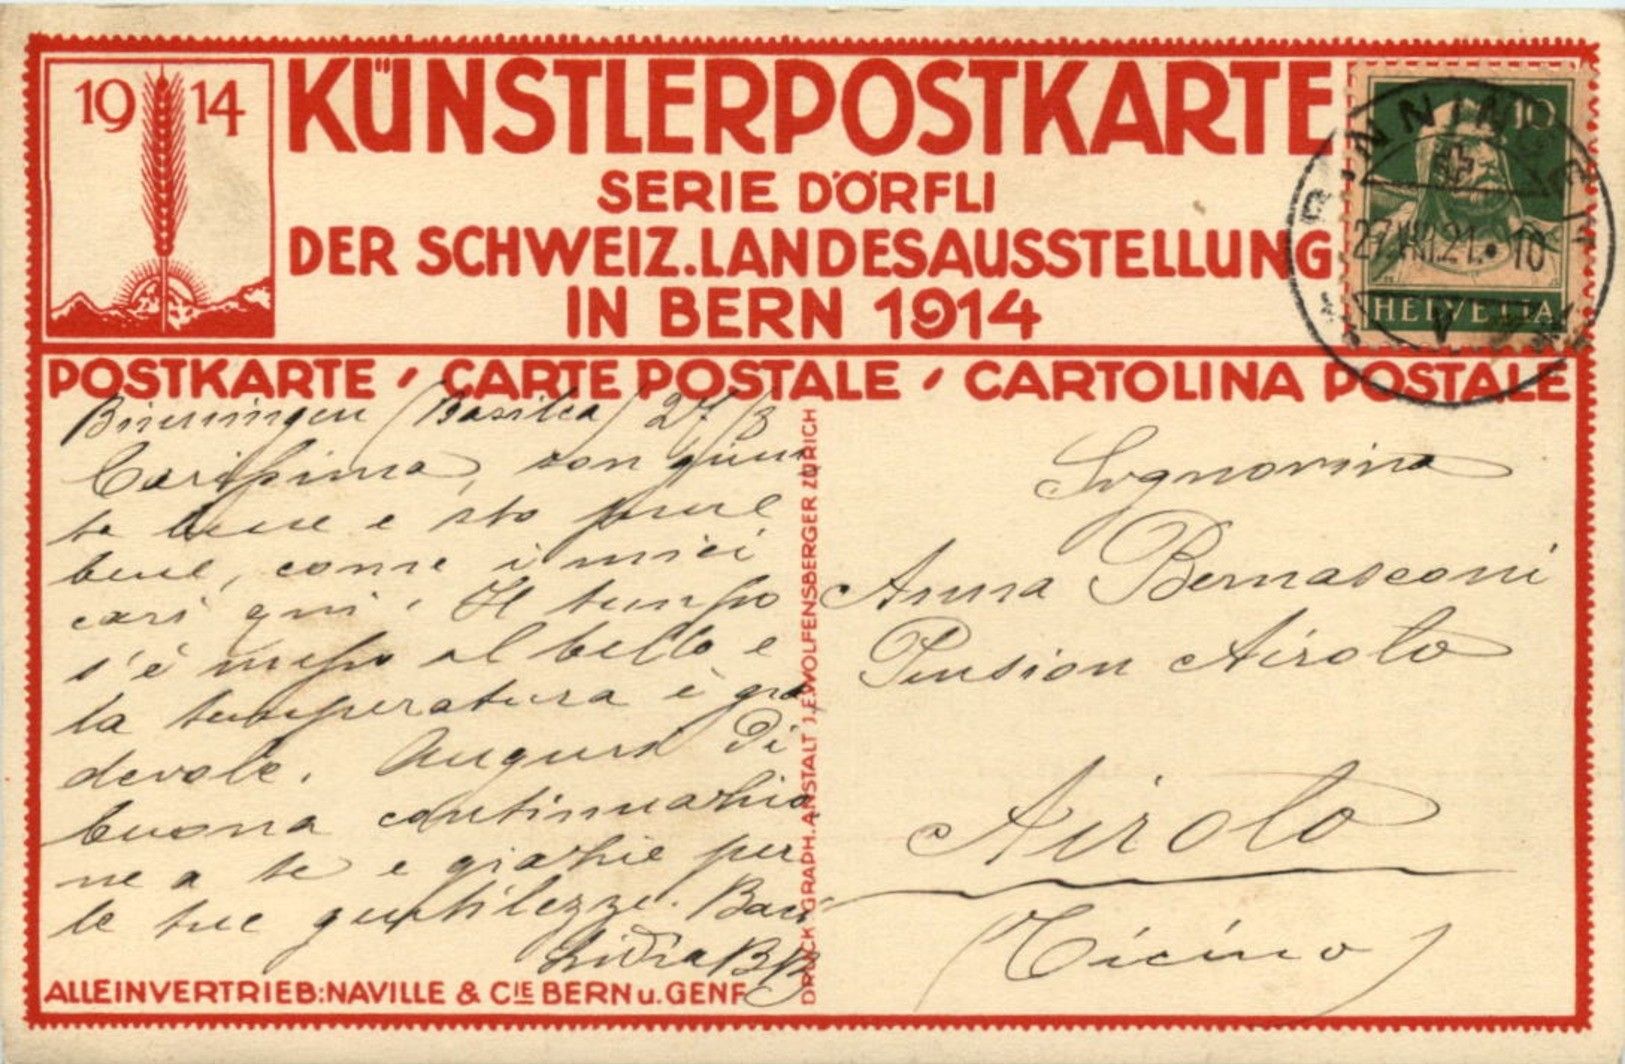 1914
KÜNSTLERPOSTKARTE
SERIE DÖRFLI
DER SCHWEIZ. LANDESAUSSTELLUNG
IN BERN 1914
10
BINNINGEN
27.VIII.21.•10
HELVETIA
POSTKARTE / CARTE POSTALE / CARTOLINA POSTALE
Binningen (Basilea) 27/8
Carissima, son giun
ta bene e sto pure
bene, come i miei
cari qui. Il tempo
s'è messo al bello e
la temperatura è gra
devole. Auguri di
buona continuazio
ne a te e grazie per
le tue gentilezze. Baci
Lidia BB
Signorina
Anna Bernasconi
Pension Airolo
Airolo
(Ticino)
DRUCK GRAPH. ANSTALT J.E.WOLFENSBERGER ZÜRICH
ALLEINVERTRIEB: NAVILLE & CIE BERN u. GENF